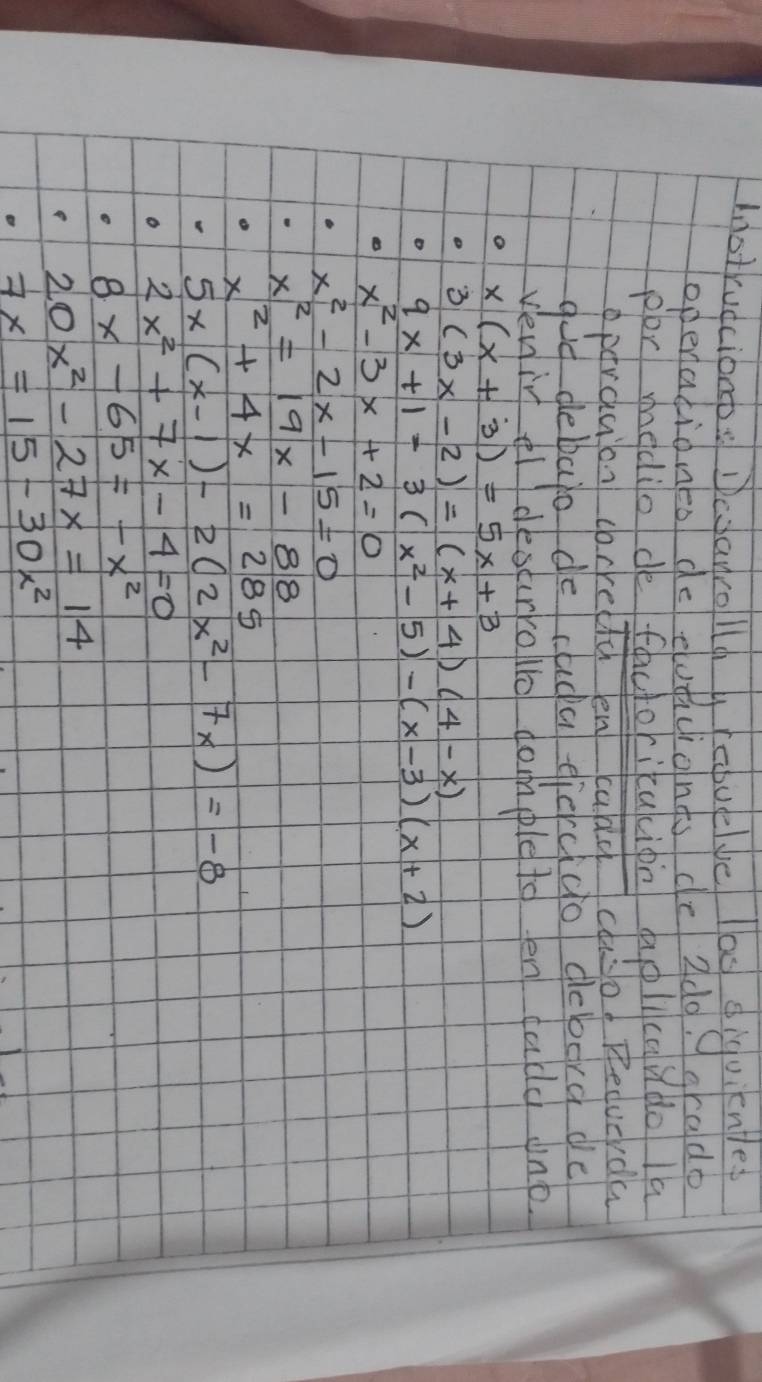 Instrucciones: Desarrolla y resuelve las siguientes
operaciones de ecuaciones de 2do. grado
por medio de factorización aplicando la
operación correcta en cada caso. Recuerda
que debajo de cada ejercicio debera de
venir el desarrollo completo en cada uno.
• x(x+3)=5x+3
• 3(3x-2)=(x+4)(4-x)
• 9x+1=3(x²-5)-(x-3)(x+2)
• x²-3x+2=0
• x²-2x-15=0
• x²=19x-88
• x²+4x=285
• 5x(x-1)-2(2x²-7x)=-8
• 2x²+7x-4=0
• 8x-65=-x²
• 20x²-27x=14
• 7x=15-30x²